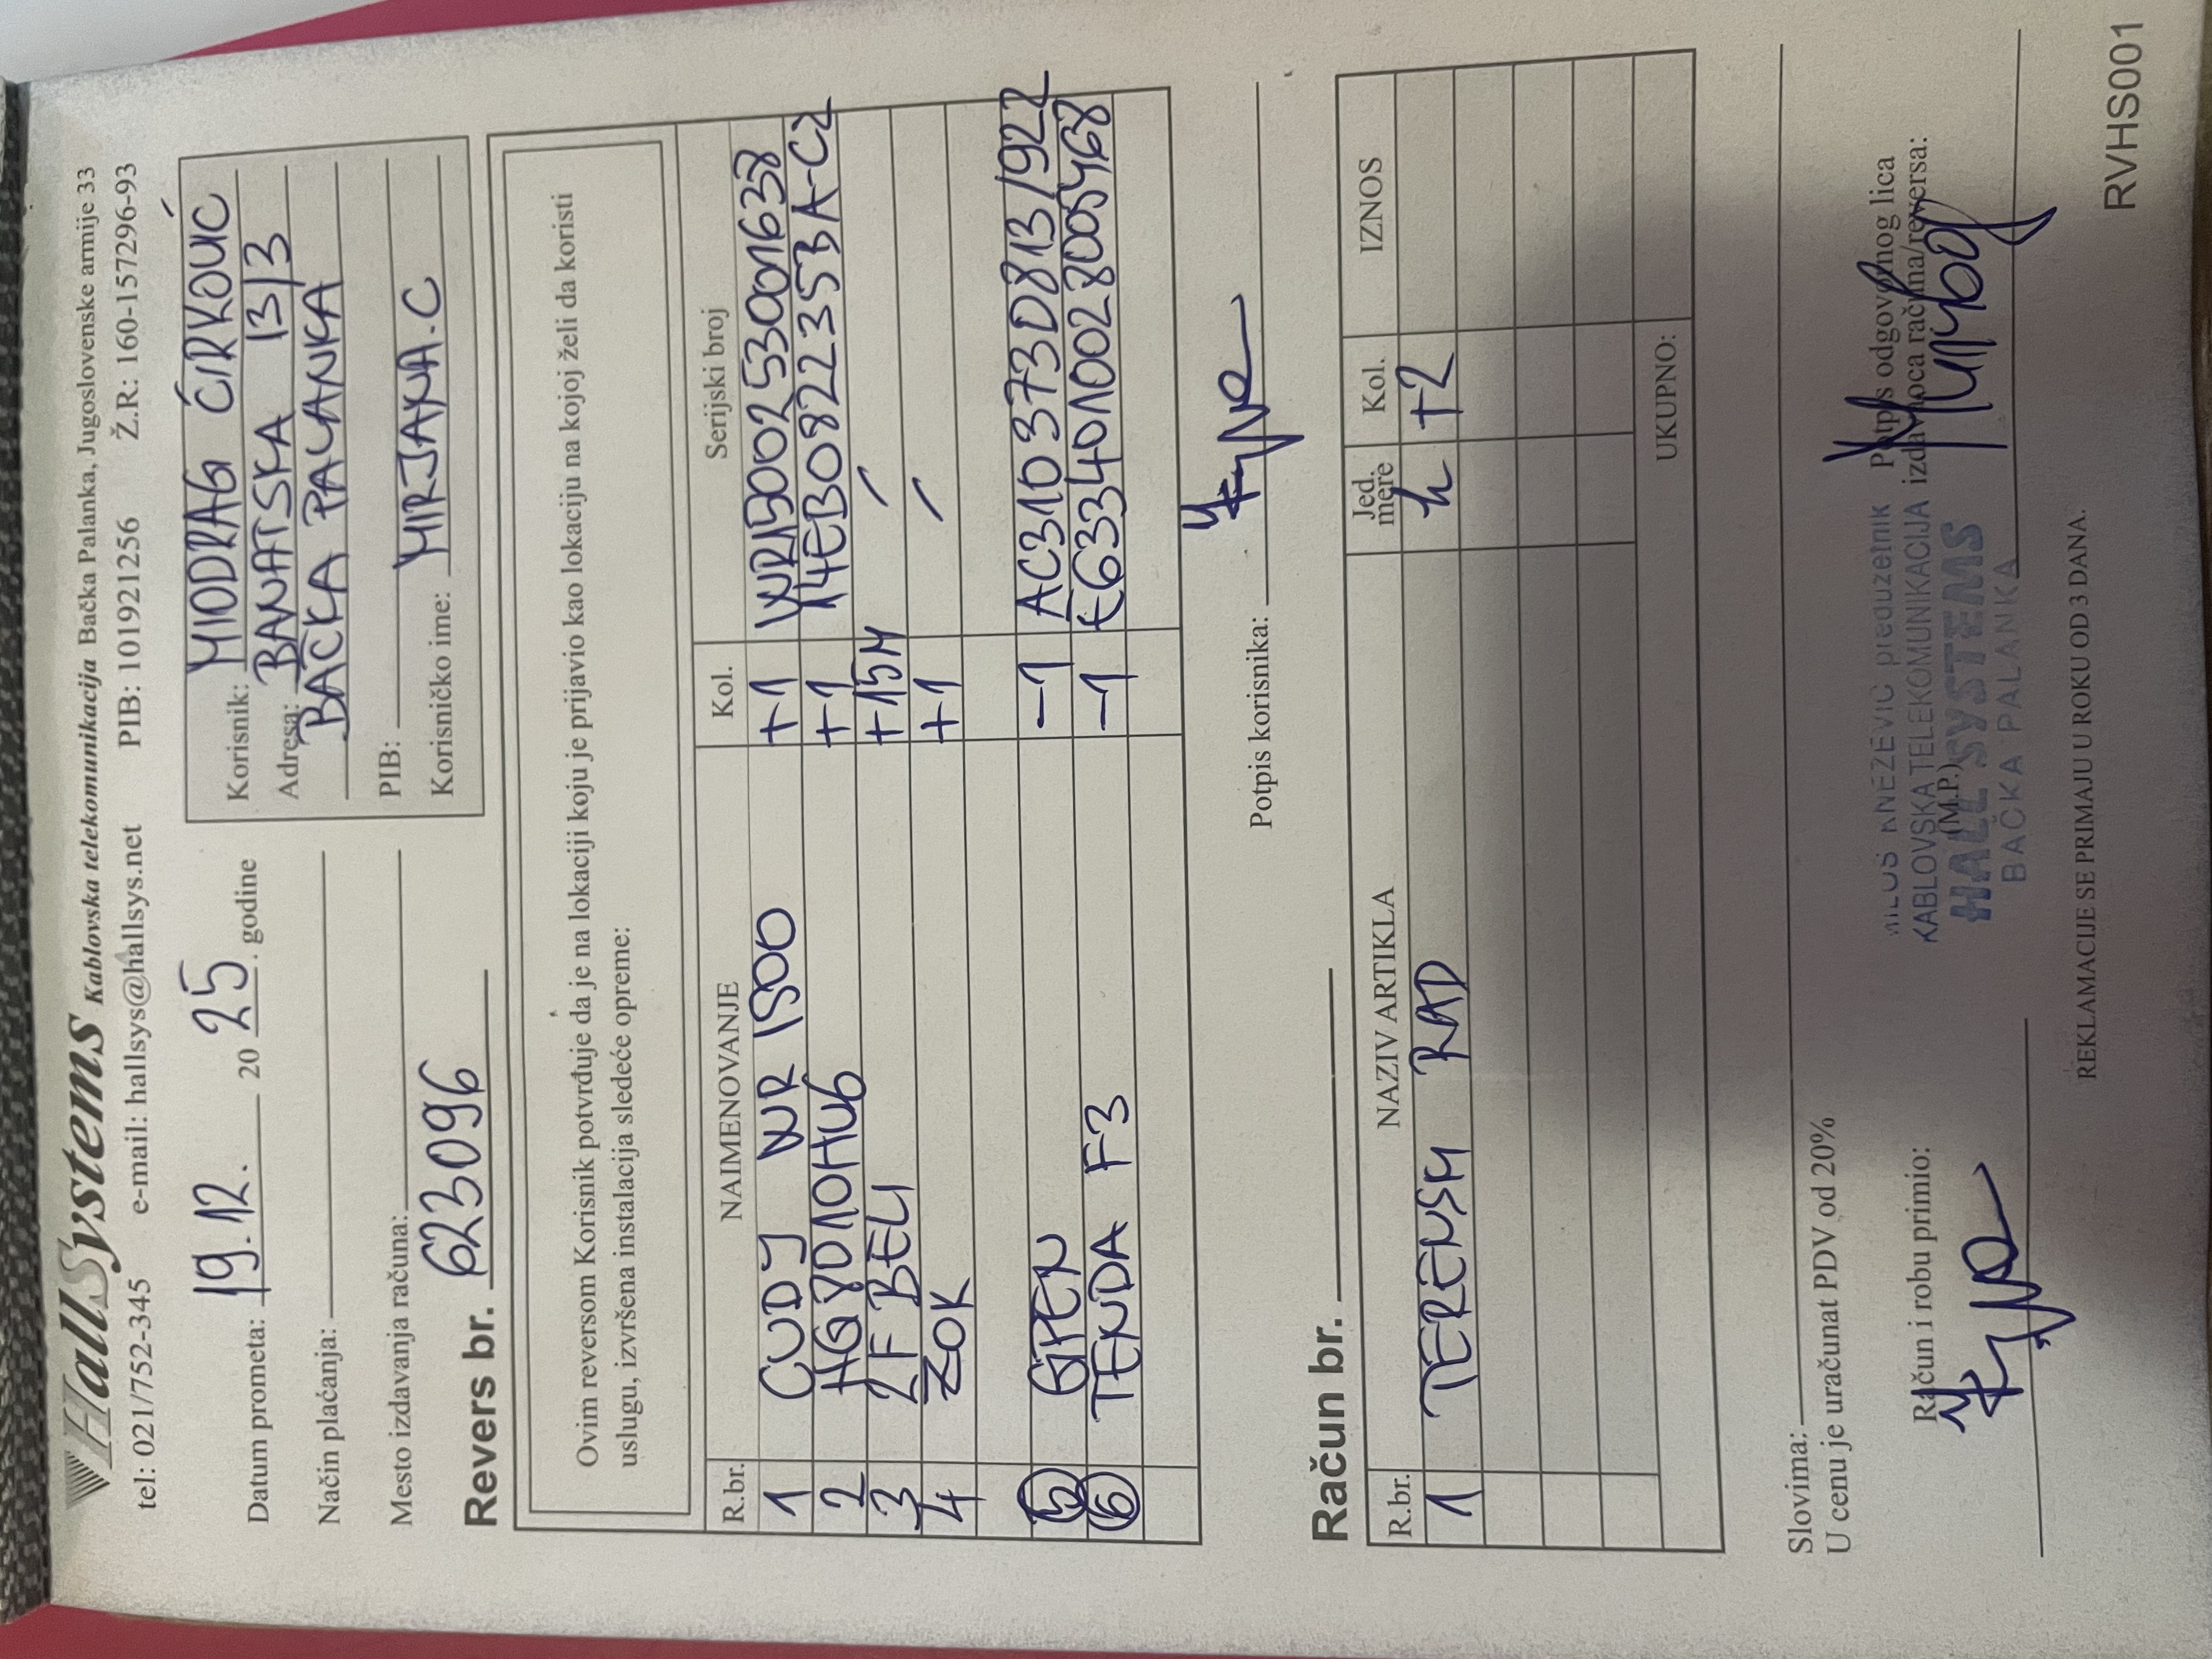 HallSystems Kablovska telekomunikacija Bačka Palanka, Jugoslovenske armije 33
tel: 021/752-345 e-mail: hallsys@hallsys.net PIB: 101921256 Ž.R.: 160-157296-93
Datum prometa: 19.12. 2025. godine
Način plaćanja:
Mesto izdavanja računa:
Korisnik: MIODRAG ĆIRKOVIĆ
Adresa: BANATSKA 13/3
BAČKA PALANKA
PIB:
Korisničko ime: MIRJANA.C
Revers br. 623096
Ovim reversom Korisnik potvrđuje da je na lokaciji koju je prijavio kao lokaciju na kojoj želi da koristi
uslugu, izvršena instalacija sledeće opreme:
R.br. NAIMENOVANJE Kol. Serijski broj
1 CUDY WR 1500 +1 WR15002530001638
2 HG8010HU6 +1 14EB0822353A-C2
3 2F BELI +15M /
4 ZOK +1 /
5 GPEN -1 AC310373D813/922
6 TENDA F3 -1 E6334010028005468
Potpis korisnika:
Račun br.
R.br. NAZIV ARTIKLA Jed. mere Kol. IZNOS
1 TERENSKI RAD h +2
UKUPNO:
Slovima:
U cenu je uračunat PDV od 20%
Račun i robu primio:
Potpis odgovornog lica
izdavaoca računa/reversa:
(M.P.)
MILOŠ KNEŽEVIĆ preduzetnik
KABLOVSKA TELEKOMUNIKACIJA
HALL SYSTEMS
BAČKA PALANKA
REKLAMACIJE SE PRIMAJU U ROKU OD 3 DANA.
RVHS001